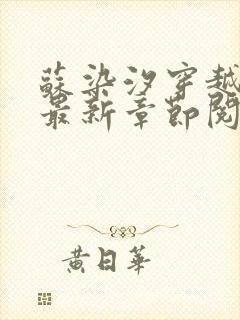 蘇染汐穿越
最新章節閱
黃日華